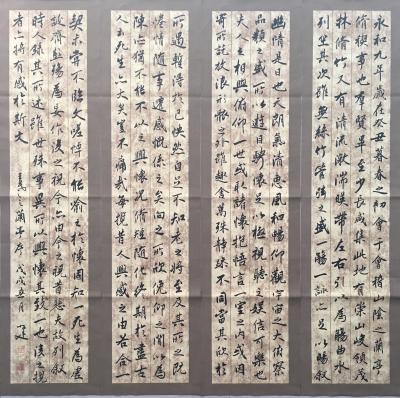 永和九年歲在癸丑暮春之初會于會稽山陰之蘭亭
脩稧事也群賢畢至少長咸集此地有崇山峻領茂
林脩竹又有清流激湍暎帶左右引以為流觴曲水
列坐其次雖無絲竹管弦之盛一觴一詠亦足以暢叙
幽情是日也天朗氣清惠風和暢仰觀宇宙之大俯察
品類之盛所以遊目騁懷足以極視聽之娛信可樂也
夫人之相與俯仰一世或取諸懷抱悟言一室之內或因
寄所託放浪形骸之外雖趣舍萬殊靜躁不同當其欣於
所遇暫得於己怏然自足不知老之將至及其所之既
惓情隨事遷感慨係之矣向之所欣俛仰之閒以為
陳迹猶不能不以之興懷況脩短隨化終期於盡古
人云死生亦大矣豈不痛哉每攬昔人興感之由若合一
契未嘗不臨文嗟悼不能喻之於懷固知一死生為虛
誕齊彭殤為妄作後之視今亦由今之視昔悲夫故列叙
時人錄其所述雖世殊事異所以興懷其致一也後之攬
者亦將有感於斯文
王羲之蘭亭序 戊戌五月